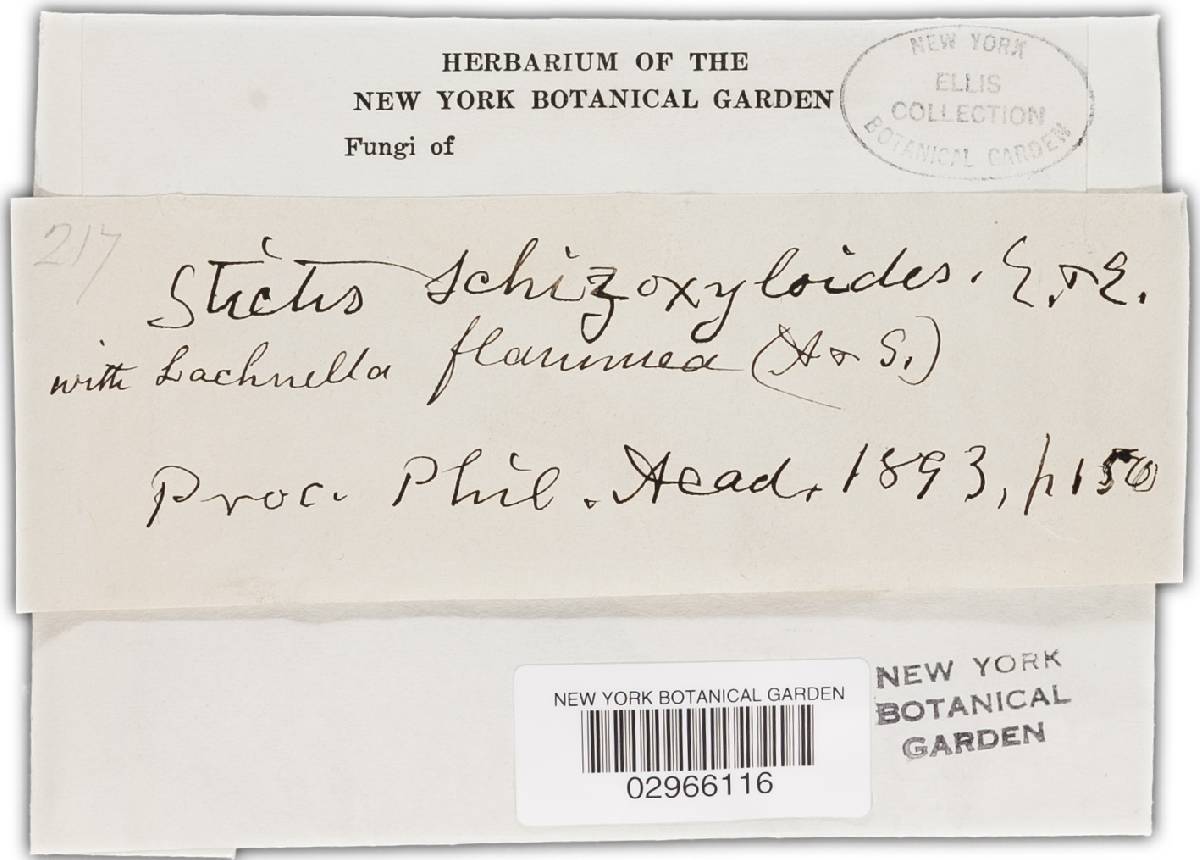 HERBARIUM OF THE
NEW YORK BOTANICAL GARDEN
Fungi of
NEW YORK
ELLIS
COLLECTION
BOTANICAL GARDEN
217
Stictis Schizoxyloides. E. & E.
with Lachnella flammea (A & S.)
Proc. Phil. Acad. 1893, p 150
NEW YORK BOTANICAL GARDEN
02966116
NEW YORK
BOTANICAL
GARDEN